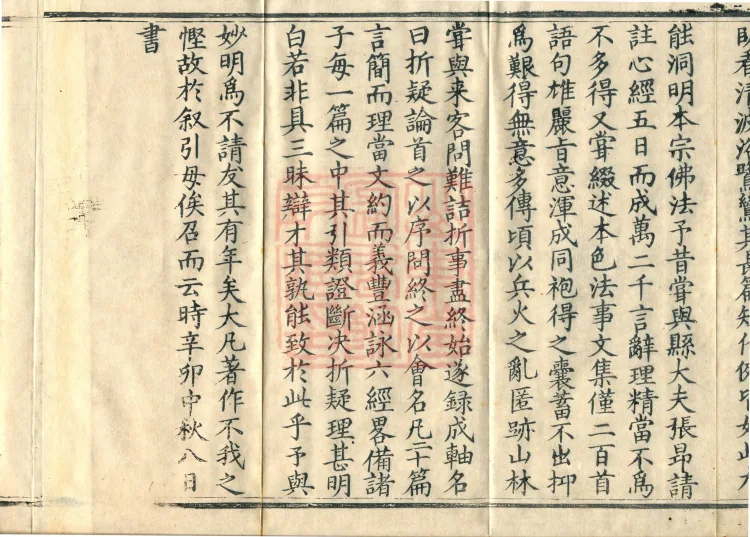 能洞明本宗佛法予昔甞與縣大夫張昂請
註心經五日而成萬二千言辭理精當不爲
不多得又甞綴述本色法事文集僅二百首
語句雄麗旨意渾成同袍得之囊蓄不出抑
爲艱得無意多傳頃以兵火之亂匿跡山林
甞與来客問難詰折事盡終始遂録成軸名
曰折疑論首之以序問終之以會名凡二十篇
言簡而理當文約而義豐涵詠六經畧備諸
子每一篇之中其引類證斷决折疑理甚明
白若非具三昧辯才其孰能致於此乎予與
妙明爲不請友其有年矣大凡著作不我之
慳故於叙引毋俟召而云時辛卯中秋八日
書